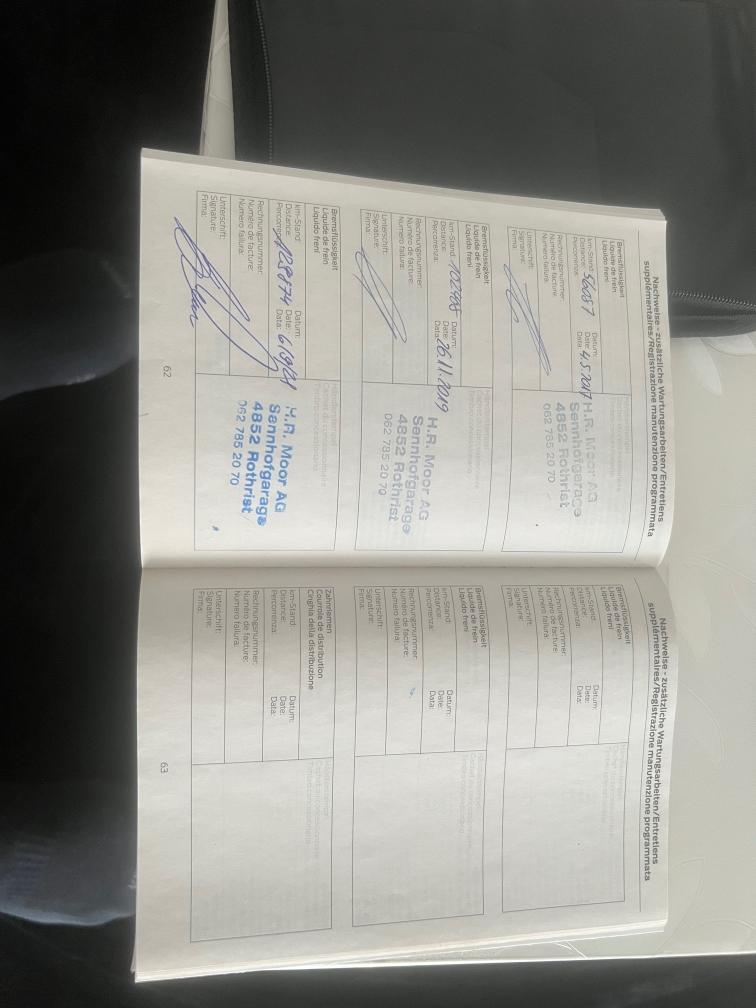 Nachweise - zusätzliche Wartungsarbeiten/Entretiens
supplémentaires/Registrazione manutenzione programmata
Bremsflüssigkeit
Liquide de frein
Liquido freni
km-Stand:
Distance:
Percorrenza:
Datum:
Date: 4.5.2017
Data:
Rechnungsnummer:
Numéro de facture:
Numero fattura:
Unterschrift:
Signature:
Firma:
H.R. Moor AG
Sennhofgarage
4852 Rothrist
062 785 20 70
Bremsflüssigkeit
Liquide de frein
Liquido freni
km-Stand:
Distance:
Percorrenza:
Datum:
Date: 26.11.2019
Data:
Rechnungsnummer:
Numéro de facture:
Numero fattura:
Unterschrift:
Signature:
Firma:
H.R. Moor AG
Sennhofgarage
4852 Rothrist
062 785 20 70
Bremsflüssigkeit
Liquide de frein
Liquido freni
km-Stand:
Distance: 128874
Datum:
Date: 6/9/21
Data:
Rechnungsnummer:
Numéro de facture:
Numero fattura:
Unterschrift:
Signature:
Firma:
H.R. Moor AG
Sennhofgarage
4852 Rothrist
062 785 20 70
62
Nachweise - zusätzliche Wartungsarbeiten/Entretiens
supplémentaires/Registrazione manutenzione programmata
Bremsflüssigkeit
Liquide de frein
Liquido freni
km-Stand:
Distance:
Percorrenza:
Datum:
Date:
Data:
Rechnungsnummer:
Numéro de facture:
Numero fattura:
Unterschrift:
Signature:
Firma:
Bremsflüssigkeit
Liquide de frein
Liquido freni
km-Stand:
Distance:
Percorrenza:
Datum:
Date:
Data:
Rechnungsnummer:
Numéro de facture:
Numero fattura:
Unterschrift:
Signature:
Firma:
Zahnriemen
Courroie de distribution
Cinghia della distribuzione
km-Stand:
Distance:
Percorrenza:
Datum:
Date:
Data:
Rechnungsnummer:
Numéro de facture:
Numero fattura:
Unterschrift:
Signature:
Firma:
63